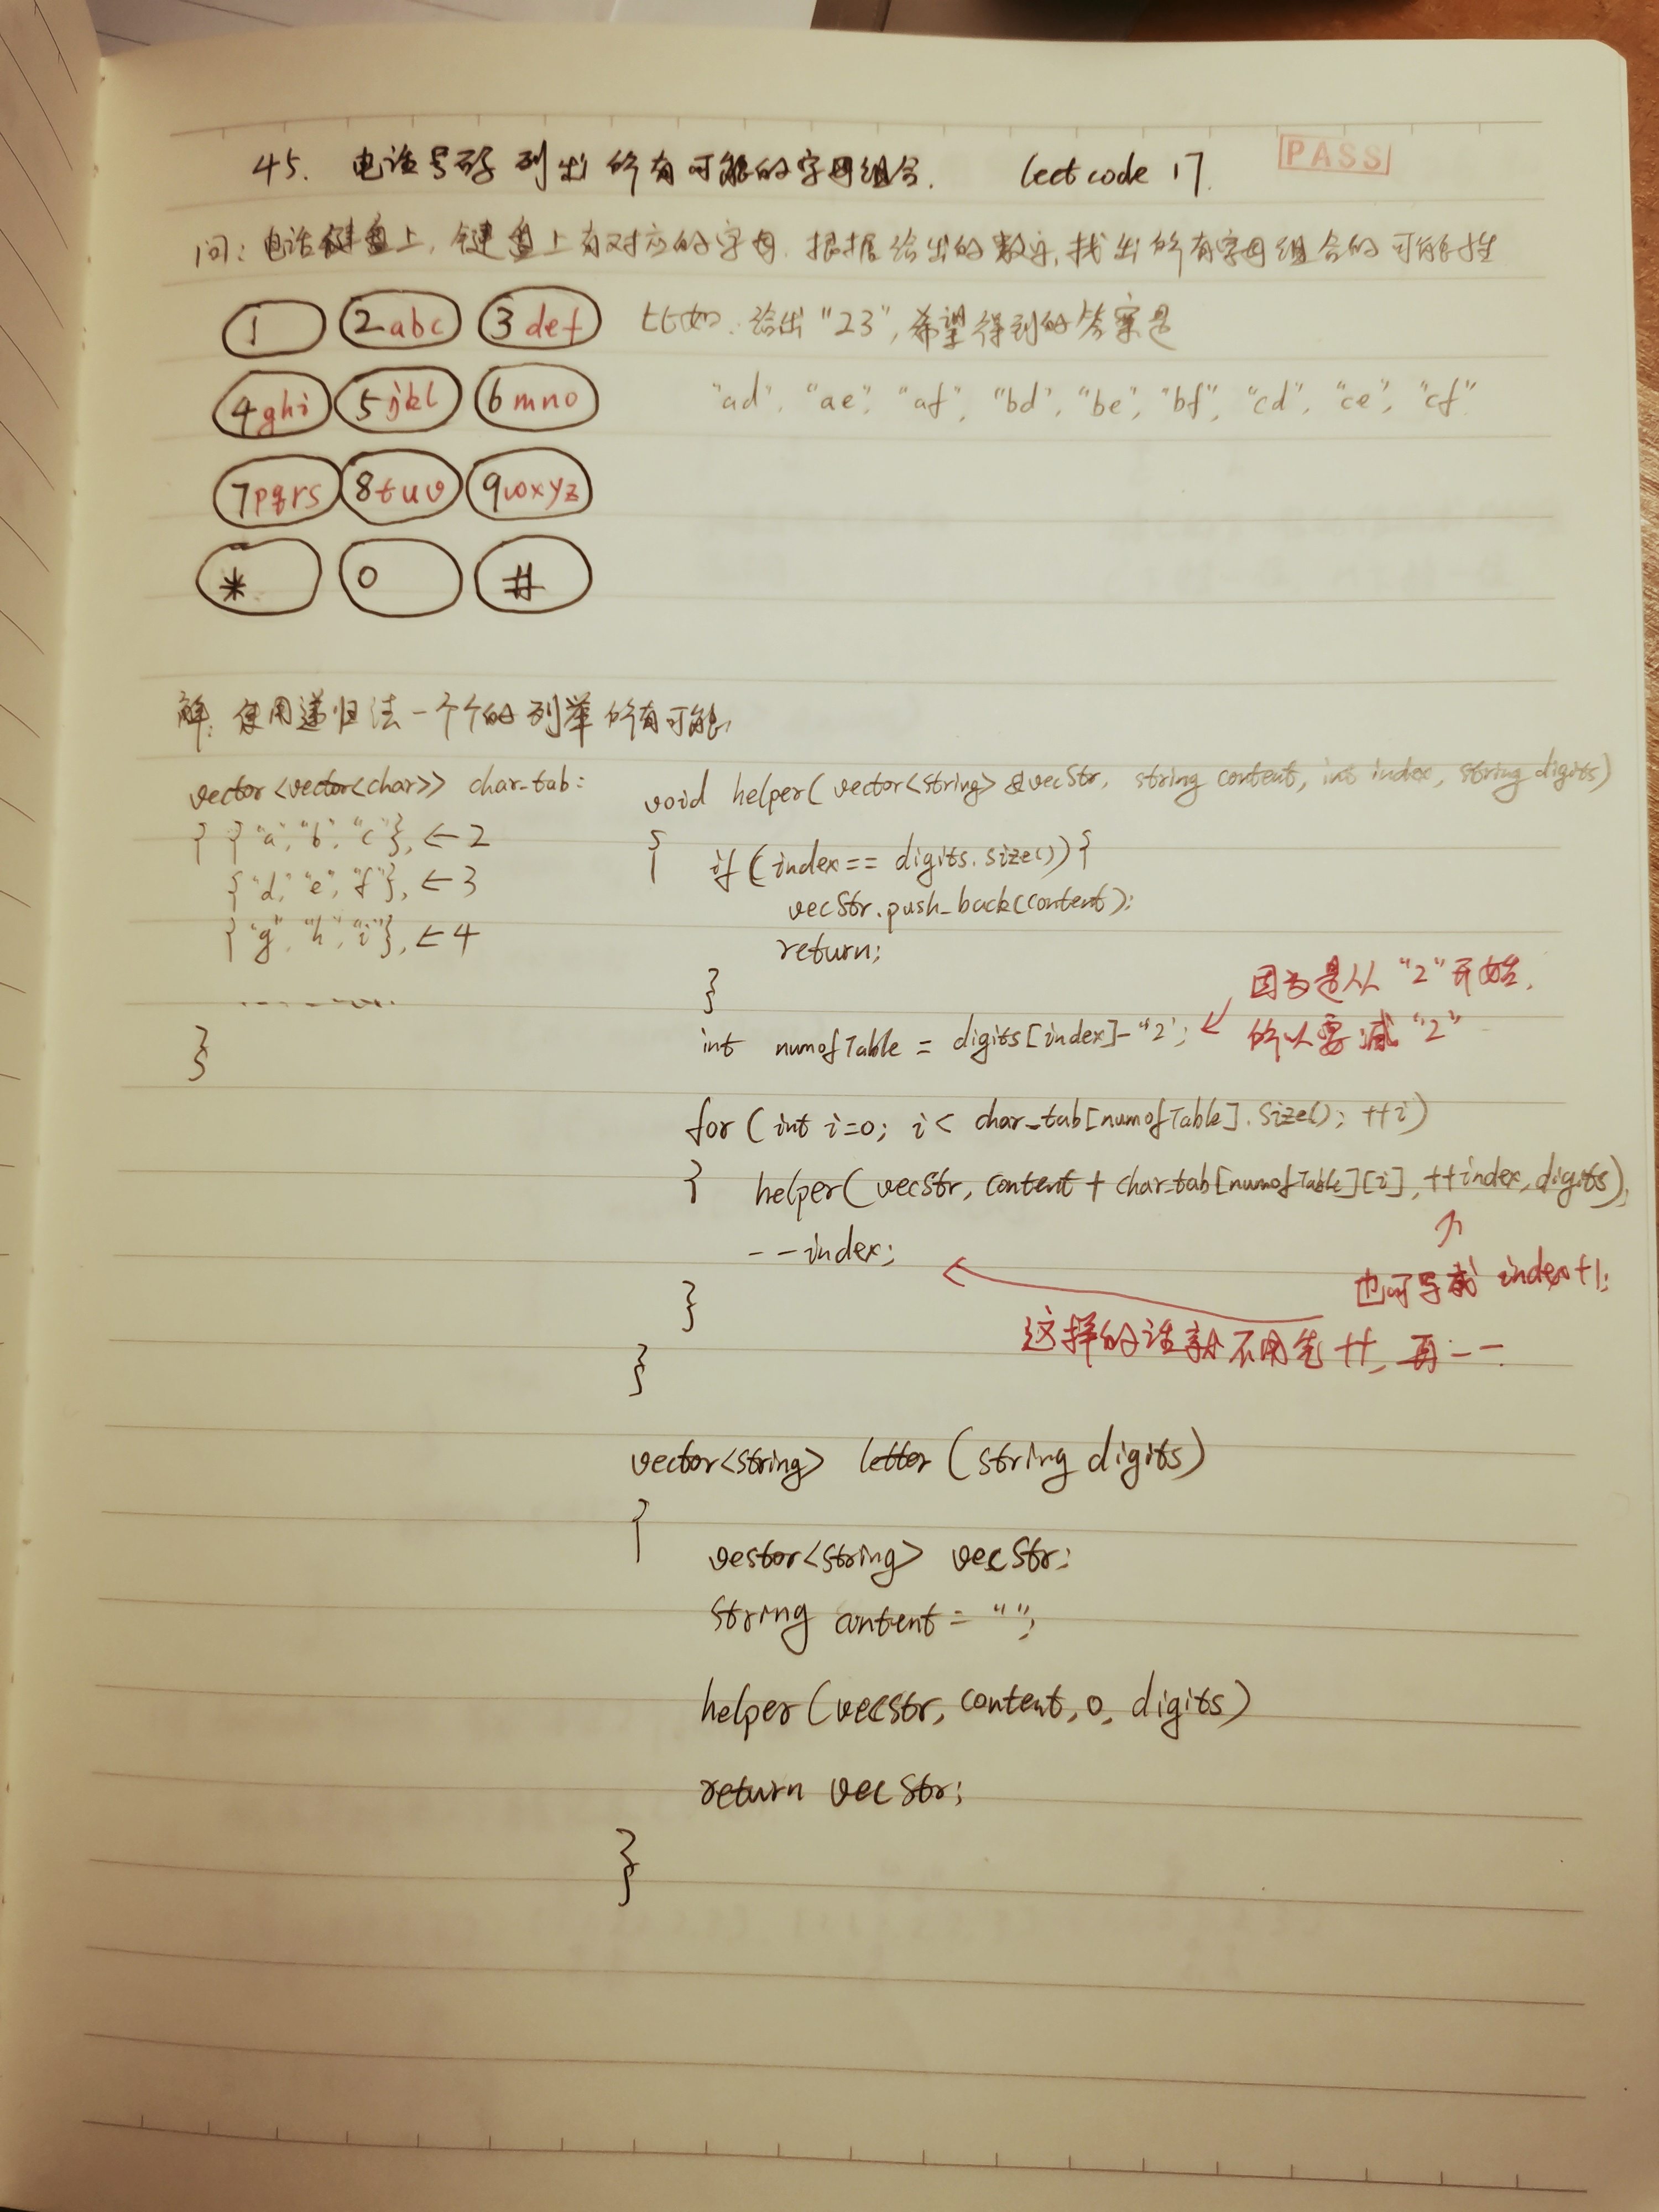 45. 电话号码 列出所有可能的字母组合. leetcode 17.
PASS
问: 电话键盘上, 键盘上有对应的字母. 根据给出的数字, 找出所有字母组合的可能性
1 2abc 3 def
比如: 给出 "23", 希望得到的答案是
4ghi 5jkl 6mno
"ad", "ae", "af", "bd", "be", "bf", "cd", "ce", "cf".
7pqrs 8tuv 9wxyz
* 0 #
解: 使用递归法一个个的列举所有可能.
vector<vector<char>> char_tab:
{ {"a", "b", "c"}, ←2
{"d", "e", "f"}, ←3
{"g", "h", "i"}, ←4
......
}
void helper( vector<string> &vecStr, string content, int index, string digits)
{ if (index == digits.size()) {
vecStr.push_back(content);
return;
}
int numofTable = digits[index]-"2'; ←
因为是从 "2" 开始,
所以要减 "2"
for (int i=0; i< char_tab[numofTable].size(); ++i)
{ helper( vecStr, content + char_tab[numofTable][i], ++index, digits);
--index;
也可写成 index+1;
这样的话就不用先 ++, 再 --
}
}
vector<string> letter (string digits)
{
vestor<string> vecStr;
string content = "";
helper(vecStr, content, 0, digits)
return vecStr;
}